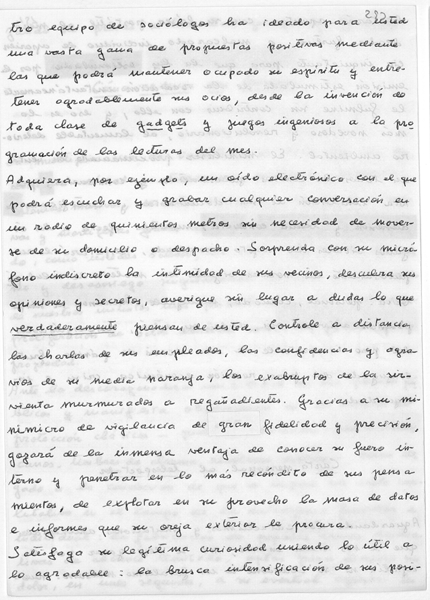 282
tro equipo de sociólogos ha ideado para usted
una vasta gama de propuestas positivas mediante
las que podrá mantener ocupado su espíritu y entre-
tener agradablemente sus ocios, desde la invención de
toda clase de gadgets y juegos ingeniosos a la pro
gramación de las lecturas del mes.
Adquiera, por ejemplo, un oído electrónico con el que
podrá escuchar y grabar cualquier conversación en
un radio de quinientos metros sin necesidad de mover-
se de su domicilio o despacho. Sorprenda con su micró
fono indiscreto la intimidad de sus vecinos, descubra sus
opiniones y secretos, averigüe sin lugar a dudas lo que
verdaderamente piensan de usted. Controle a distancia
las charlas de sus empleados, las confidencias y agra-
vios de su media naranja, los exabruptos de la sir-
vienta murmurados a regañadientes. Gracias a su mi
nimicro de vigilancia de gran fidelidad y precisión,
gozará de la inmensa ventaja de conocer su fuero in-
terno y penetrar en lo más recóndito de sus pensa
mientos, de explotar en su provecho la masa de datos
e informes que su oreja exterior le procura.
Satisfaga su legítima curiosidad uniendo lo útil a
lo agradable: la brusca intensificación de sus posi-